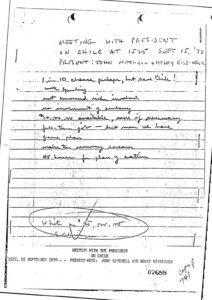 MEETING WITH PRESIDENT
ON CHILE AT 1525 SEPT 15, '70
PRESENT: JOHN MITCHELL & HENRY KISSINGER
1 in 10 chance perhaps, but save Chile!
worth spending
not concerned risks involved
no involvement of embassy
$10,000,000 available, more if necessary
full-time job - best men we have
game plan
make the economy scream
48 hours for plan of action
MEETING WITH THE PRESIDENT
ON CHILE
1525, 15 SEPTEMBER 1970 -- PRESENT WERE: JOHN MITCHELL AND HENRY KISSINGER
07688